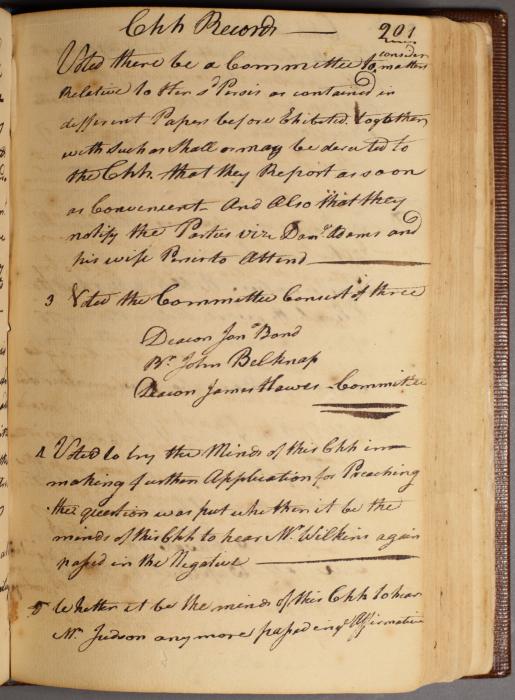 Chh Records — 201
Voted there be a Committee to consider matters
Relative to Her sd Persis as contained in
different Papers before Exhibited. together
with such as Shall or may be directed to
the Chh. that they Report as soon
as Convenient And Also that they
notify the Parties vize Danl Adams and
his wife Persis to Attend
3 Voted the Committee Consist of three
Deacon Jona Bond
Br. John Belknap
Deacon James Hawes Committee
4 Voted to try the Minds of this Chh in
making further Application for Preaching
the question was put whether it be the
minds of this Chh to hear Mr. Wilkins again
passed in the Negative
5 Whether it be the minds of this Chh to hear
Mr. Judson any more passed in ye Affirmative